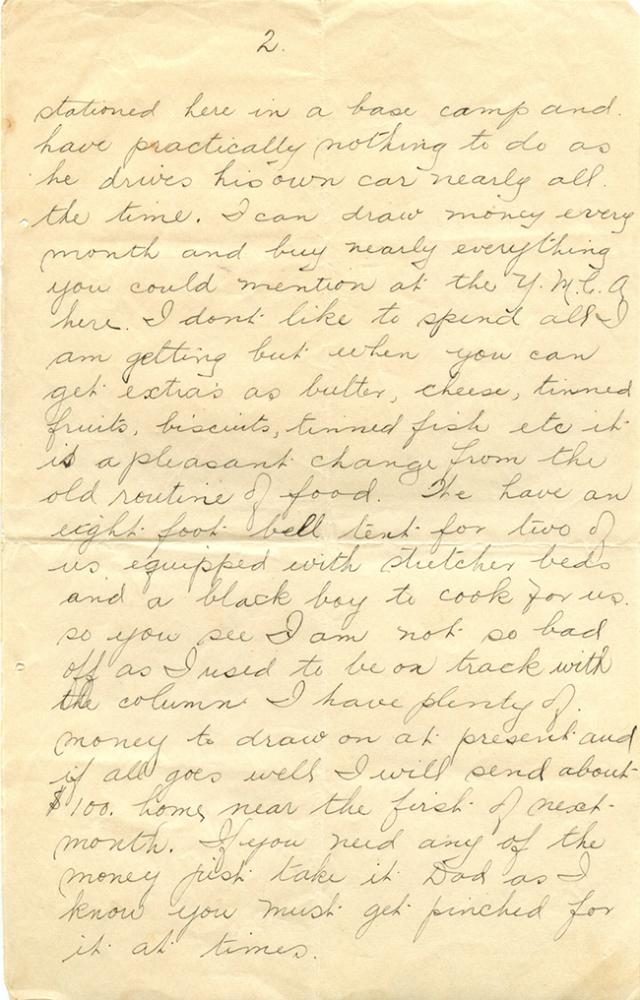 2.
stationed here in a base camp and
have practically nothing to do as
he drives his own car nearly all
the time. I can draw money every
month and buy nearly everything
you could mention at the Y.M.C.A
here. I dont like to spend all I
am getting but when you can
get extra's as butter, cheese, tinned
fruits, biscuits, tinned fish etc it
is a pleasant change from the
old routine of food. We have an
eight foot bell tent for two of
us equipped with stretcher beds
and a black boy to cook for us.
so you see I am not so bad
off as I used to be on track with
the column I have plenty of
money to draw on at present and
if all goes well I will send about
$100. home near the first of next
month. If you need any of the
money just take it Dad as I
know you must get pinched for
it at times.